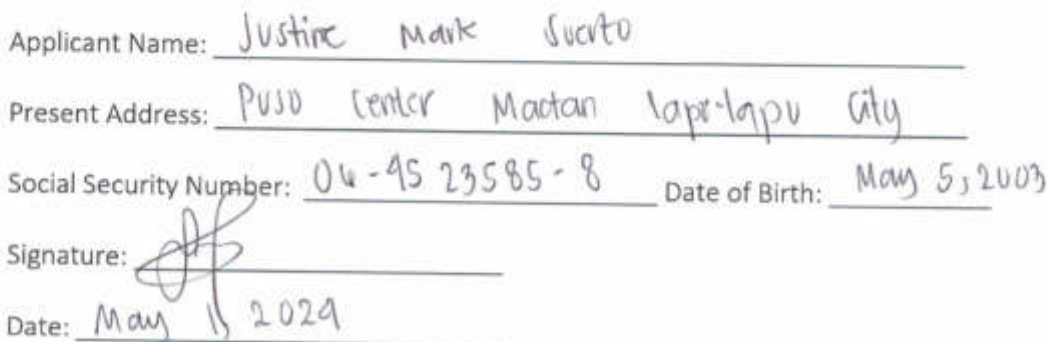 Applicant Name: Justine Mark Suerto
Present Address: Puso Center Mactan lapu-lapu City
Social Security Number: 06-4523585-8 Date of Birth: May 5, 2003
Signature:
Date: May 2024